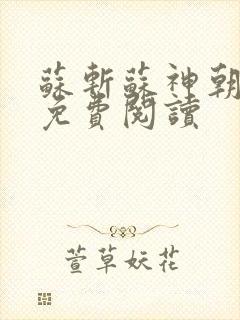 蘇斬蘇神朝
免費閱讀
萱草妖花